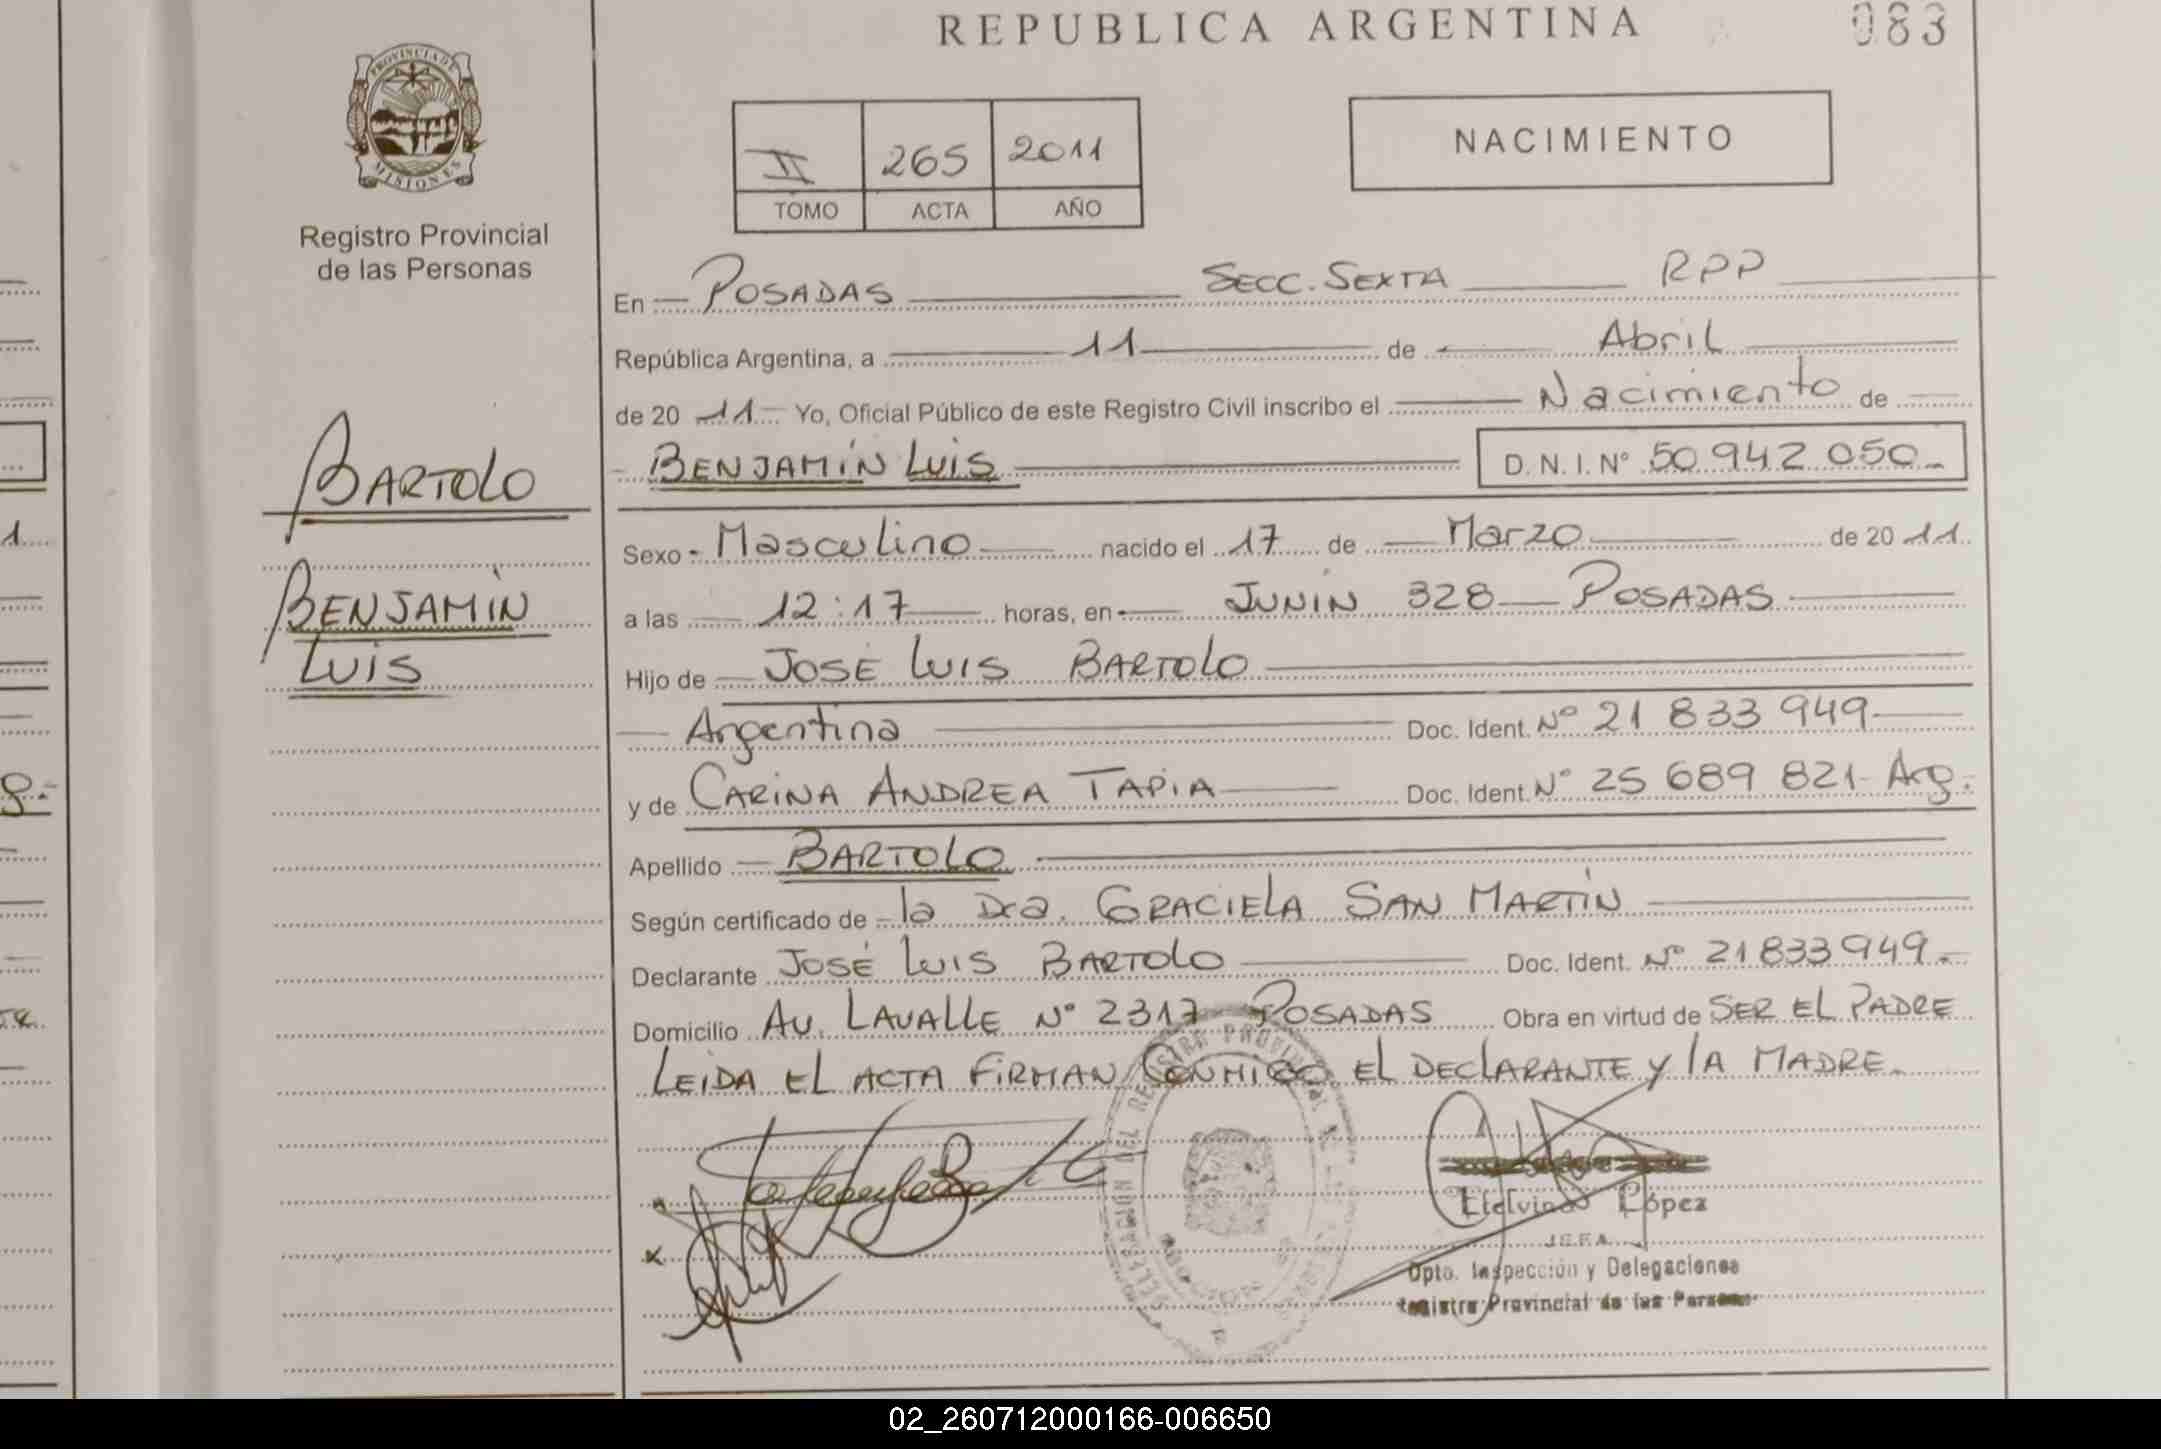 REPUBLICA ARGENTINA
083
PROVINCIA DE
MISIONES
Registro Provincial
de las Personas
II 265 2011
TOMO ACTA AÑO
NACIMIENTO
En POSADAS SECC. SEXTA RPP
República Argentina, a 11 de Abril
de 20 11 Yo, Oficial Público de este Registro Civil inscribo el Nacimiento de
BENJAMÍN LUIS D. N. I. Nº 50 942 050
BARTOLO
BENJAMÍN
LUIS
Sexo Masculino nacido el 17 de Marzo de 20 11
a las 12:17 horas, en JUNÍN 328 POSADAS
Hijo de JOSÉ LUIS BARTOLO
Argentina Doc. Ident. Nº 21 833 949
y de CARINA ANDREA TAPIA Doc. Ident. Nº 25 689 821 Arg.
Apellido BARTOLO
Según certificado de la Dra. GRACIELA SAN MARTÍN
Declarante JOSÉ LUIS BARTOLO Doc. Ident. Nº 21 833 949
Domicilio AV. LAVALLE Nº 2317 POSADAS Obra en virtud de SER EL PADRE
LEIDA EL ACTA FIRMAN CONMIGO EL DECLARANTE Y LA MADRE.
Etelvina López
JEFA
Dpto. Inspección y Delegaciones
Registro Provincial de las Personas
02_260712000166-006650